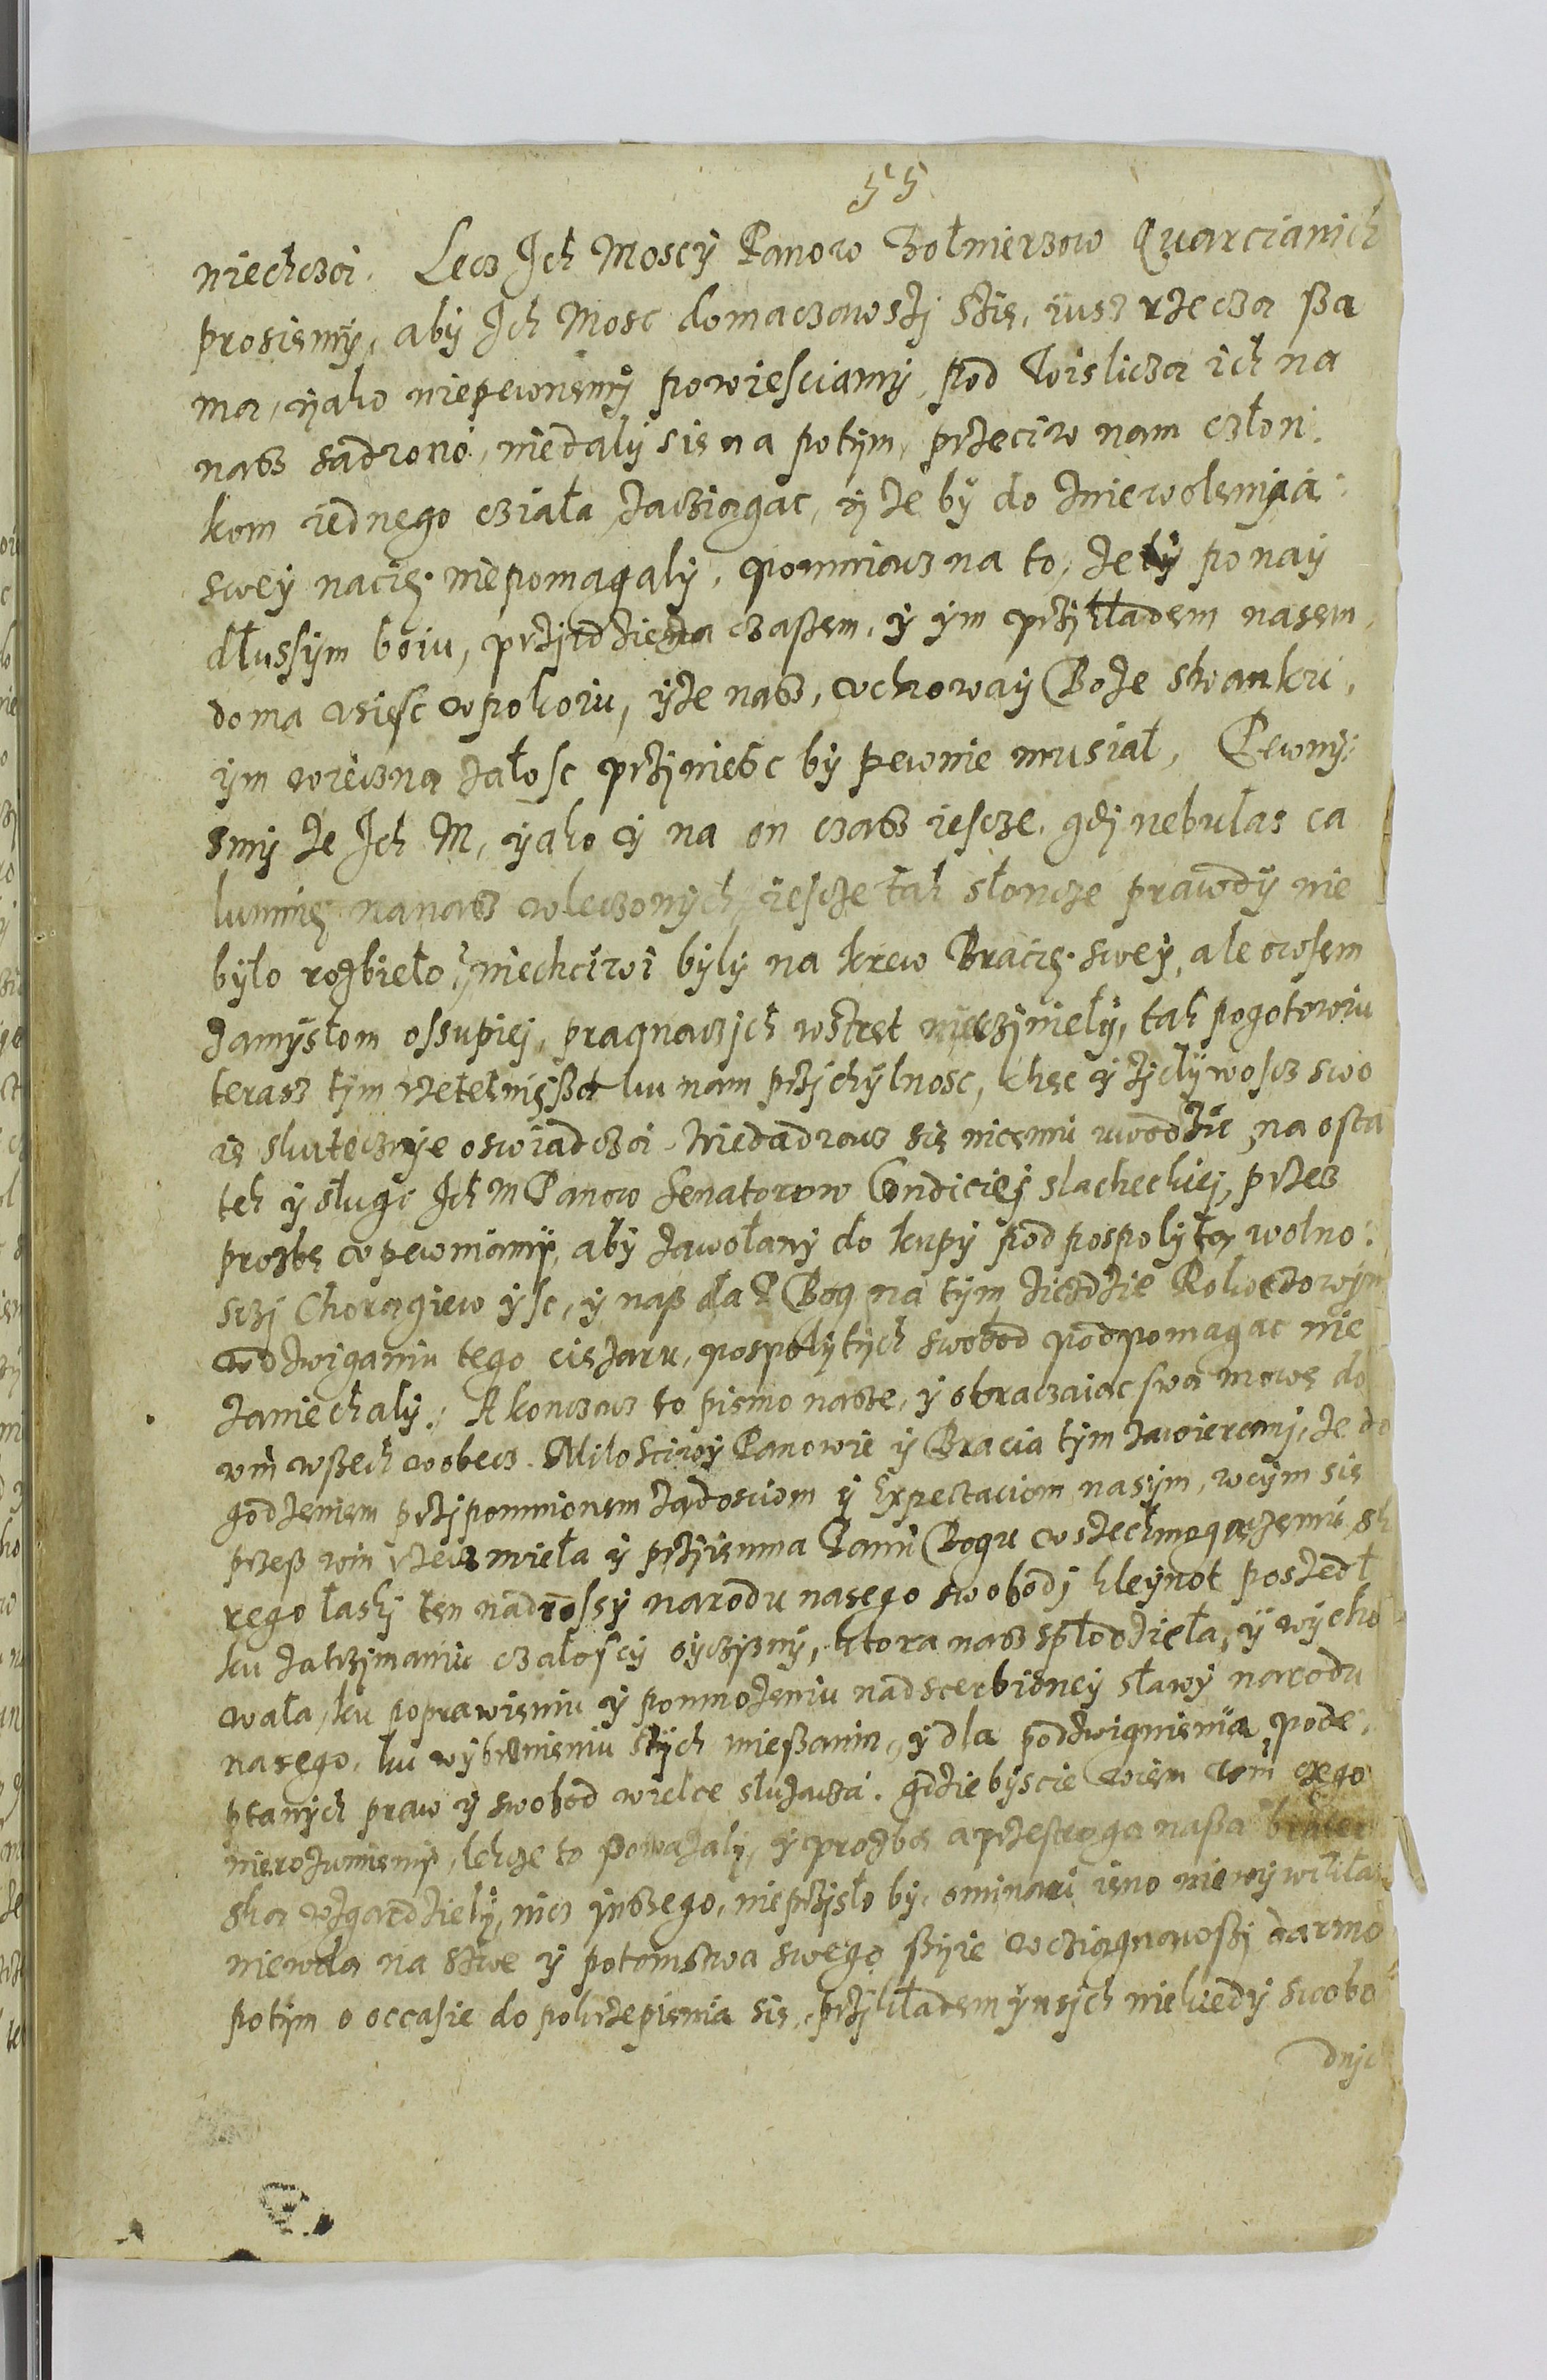 55
niechczą. Lecz Ich Moscy Panow Zołnierzow Quarcianich
prosiemy, aby Ich Mosc domaczawszi szię, iusz rzeczą sza
mą, yako niepewnemy powiesciamy, pod Wisliczą ich na
nasz sadzono, niedaly sie na potym, przeciw nam człon:
kom iednego cziała zacziągac, y ze by do zniewolenia:
swey nacię niepomagaly, pomniącz na to, ze y po nay
dłussym boiu, przidzie za czasem, y ym przikładem nasem,
doma usiesc w pokoiu, yze nasz, uchoway Boze szwanku,
ym wieczną załosc przinieśc by pewnie musiał, Pewny:
smy ze Ich M, yako y na on czasz iescze, gdj nebulas ca
lumnię nanasz wleczonych, iescze tak słoncze prawdy nie
było rozbieło, niechciwi byly na krew Bracię swey, ale owsem
zamysłom ossupiei, pragnączjch wstręt uczjniely, tak pogotowiu
terasz tym rzetelnięszą ku nam przichylnosc, chęc y ziczlywoscz swo
ię skutecznye oswiadczą. Niedadzącz się niczemu uwodzic, na osta
tek y sługi Ich M Panow Senatorow Condiciej slacheckiej, przez
prozbę upewniamy, aby zawołany do kupy pod pospolytą wolno:
sczi Chorągiew ysc, y nasz da P Bog na tym ziezdzie Rokoszowym
w dzwiganiu tego ciezaru, pospolytych swobod podpomagac nie
zaniechaly. A konczącz to pismo nasze, y obraczaiąc swą mowę do
wm wszech wobecz. Miłosciwy Panowie y Bracia tym zawieramj, ze do
godzeniem przipomnionem ządosciom y Expectaciom nasym, w czym się
przesz wm rzecz mieła y przijemna Panu Bogu wszechmogączemu sk
rego łaskj ten nadrossy narodu nasego swobodj kleynot poszedł
ku zatrzimaniu czałoscy oyczyzny, ktora nasz spłodzieła, y wycho
wała, ku poprawieniu y pomnozeniu nadszerbioney sławy narodu
nasego, ku wybrnieniu stych mieszanin, y dla podzwignienia pode:
ptanych praw y swobod wielce słuzączą. gdzie byscie wiem wm czego
nierozumiemy, lekcze to powazaly, y prozbą a przestrogą naszą brater
ską wzgardziely, nicz ynszego, nieprzisło by ominari ieno niewywikłan
niewolą na szwe y potomstwa swego szyie wcziągnąwszj darmo
potym o occasie do pokrzepienia się, przikładem ynsych niekiedy swobo
dnjc